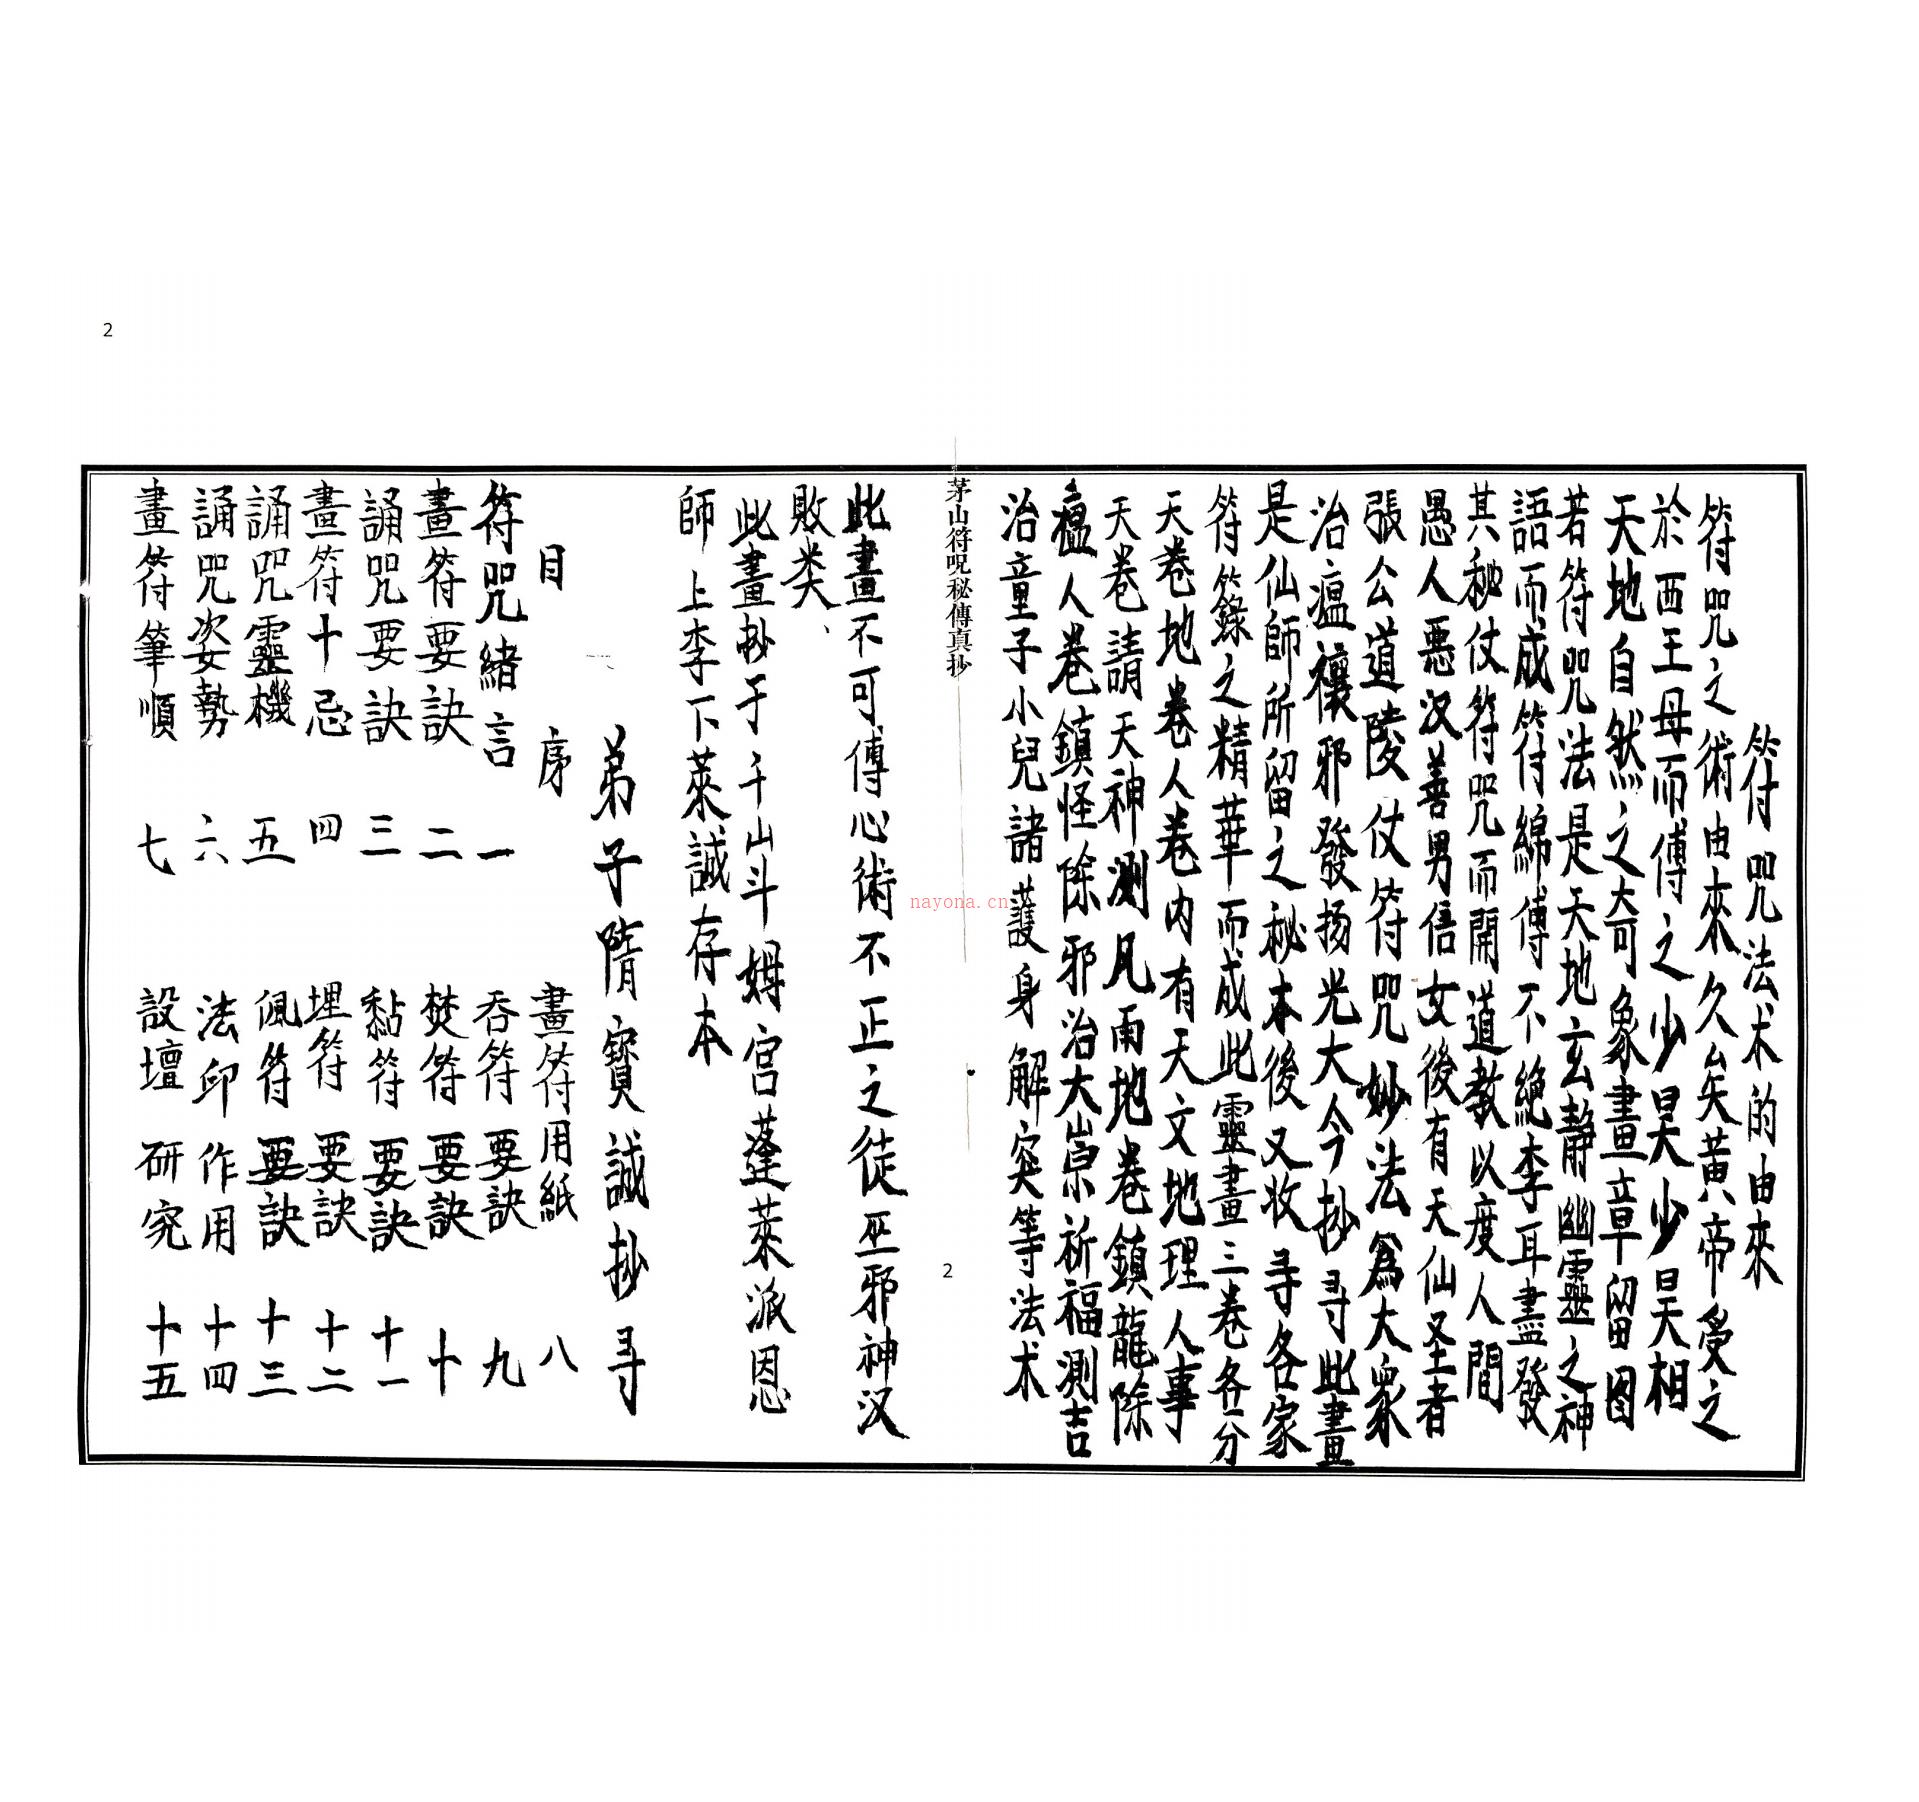 2
符咒法术的由來
符咒之術由來久矣黃帝受之
於西王母而傳之少昊少昊相
天地自然之奇象畫章留图
若符咒法是天地玄靜幽靈之神
語而成符符綿傳不絶李耳盡發
其秘仗符咒而開道教以度人間
愚人惡汉善男信女後有天仙圣者
張公道陵仗符咒妙法為大衆
治瘟禳邪發扬光大今抄寻此畫
是仙師所留之秘本後又收寻各家
符籙之精華而成此靈畫三卷各分
天卷地卷人卷内有天文地理人事
天卷請天神測凡雨地卷鎮龍除
瘟人卷鎮怪除邪治大祟祈福測吉
治童子小兒諸護身解突等法术
茅山符呪秘傳真抄
2
此畫不可傳心術不正之徒巫邪神汉
敗类、
此畫抄于千山斗姆宮蓬萊派恩
師上李下萊誠存本
弟子隋寶誠抄寻
目序
符咒緒言一
畫符要訣二
誦咒要訣三
畫符十忌四
誦咒靈機五
誦咒姿勢六
畫符筆順七
畫符用紙八
吞符要訣九
焚符要訣十
黏符要訣十一
埋符要訣十二
佩符要訣十三
法印作用十四
設壇研究十五
nayona.cn